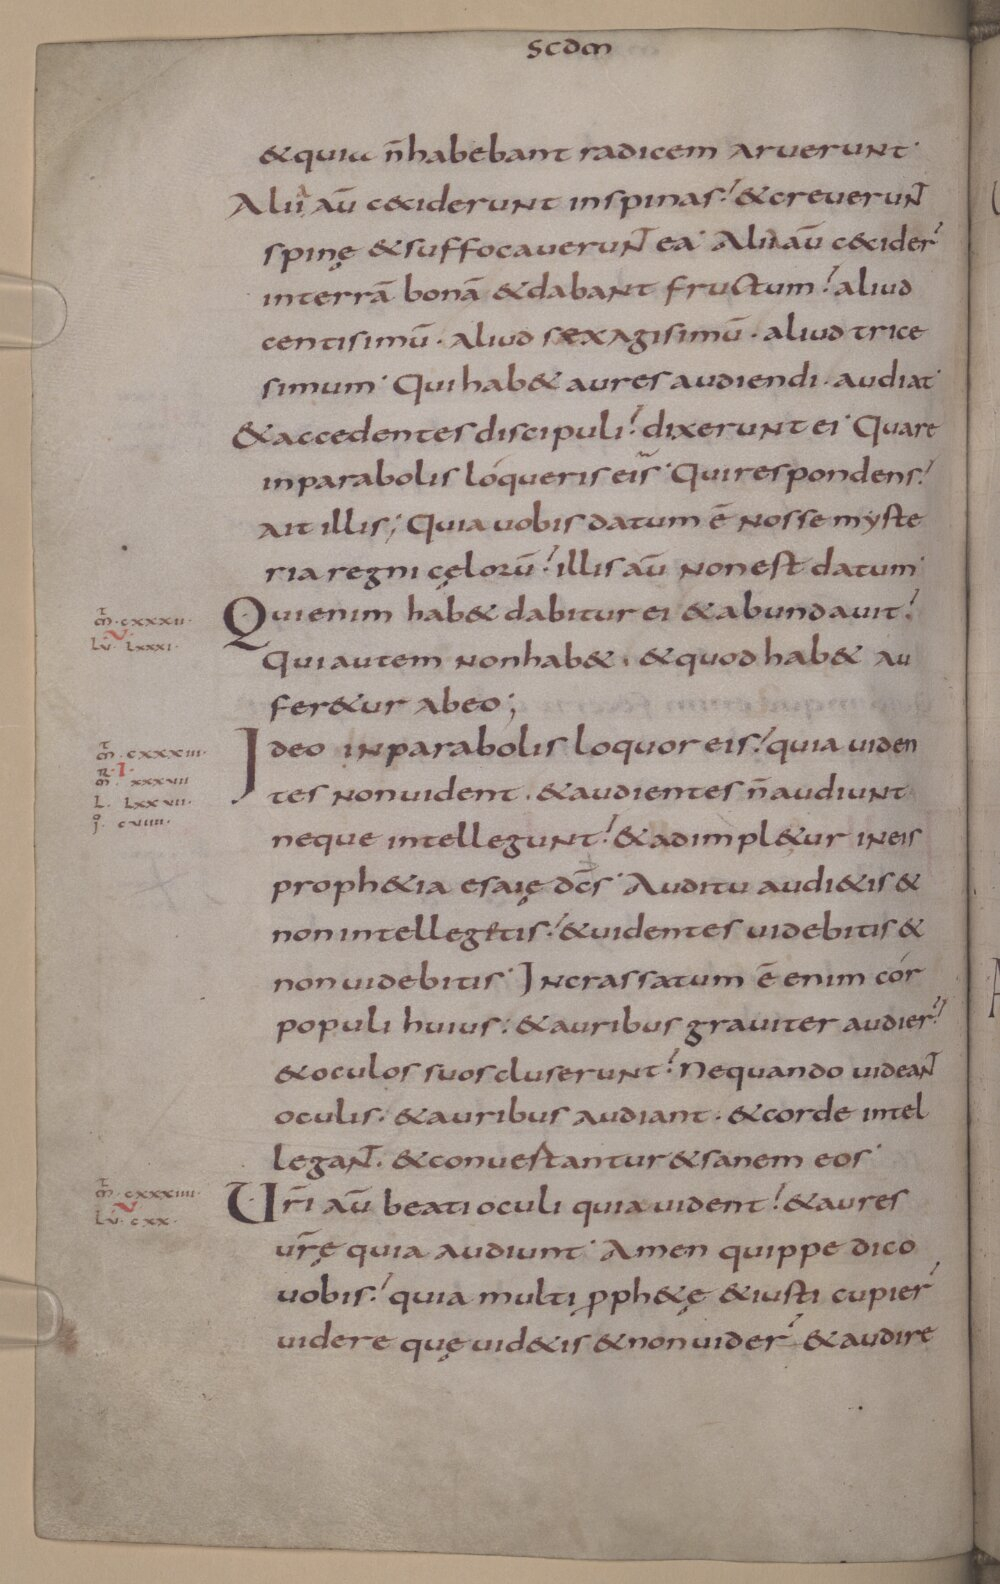 scdm
& quia n̄ habebant radicem aruerunt·
Alia aū c&ciderunt in spinas? & creuerunt
spinę & suffocauerunt ea· Alia aū c&cider̄
in terrā bonā & dabant fructum? aliud
centisimū· aliud sexagisimū· aliud trice
simum· Qui hab& aures audiendi· audiat·
& accedentes discipuli? dixerunt ei· Quare
in parabolis loqueris eis· Qui respondens?
ait illis; Quia uobis datum ē nosse myste
ria regni cęlorū? illis aū non est datum·
m̄t· cxxxii·
Lū· Lxxxi·
Qui enim hab& dabitur ei & abundauit?
Qui autem non hab&· & quod hab& au
fer&ur ab eo;
m̄t· cxxxiii·
mR· I· xxxvii
L· Lxxvii·
j̊· cviiii·
Ideo in parabolis loquor eis? quia uiden
tes non uident· & audientes n̄ audiunt
neque intellegunt? & adimpl&ur in eis
proph&ia esaię dc̄s· Auditu audi&is &
non intellegetis? & uidentes uidebitis &
non uidebitis· Incrassatum ē enim cor
populi huius: & auribus grauiter audier̄?
& oculos suos cluserunt? Nequando uideant
oculis· & auribus audiant· & corde intel
legant· & conuestantur & sanem eos·
m̄t· cxxxiiii·
Lū· cxx·
Ur̄i aū beati oculi quia uident? & aures
ur̄ę quia audiunt· Amen quippe dico
uobis? quia multi ꝓph&ę & iusti cupier̄
uidere quę uid&is & non uider̄? & audire